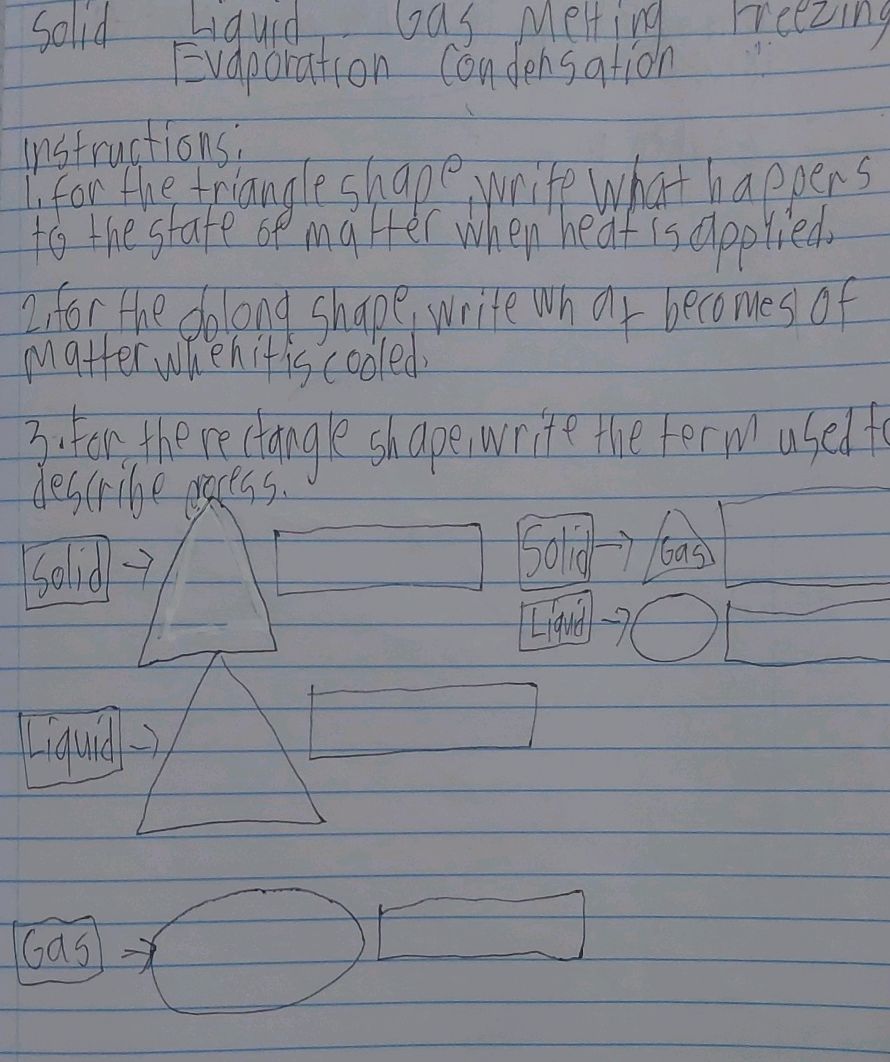 Solid Liquid Gas Melting Freezing
Evaporation Condensation
Instructions:
1. for the triangle shape, write what happens
to the state of matter when heat is applied.
2. for the oblong shape, write what becomes of
matter when it is cooled.
3. for the rectangle shape, write the term used to
describe process.
Solid → Solid → Gas
Liquid →
Liquid →
Gas →